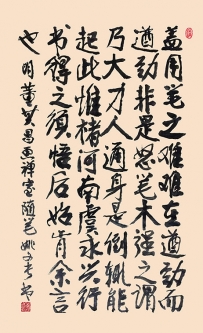 盖用笔之难难在遒劲而
遒劲非是怒笔木强之谓
乃大力人通身是倒辄能
起此惟褚河南虞永兴行
书得之须悟后始肯余言
也明董其昌画禅室随笔姚书